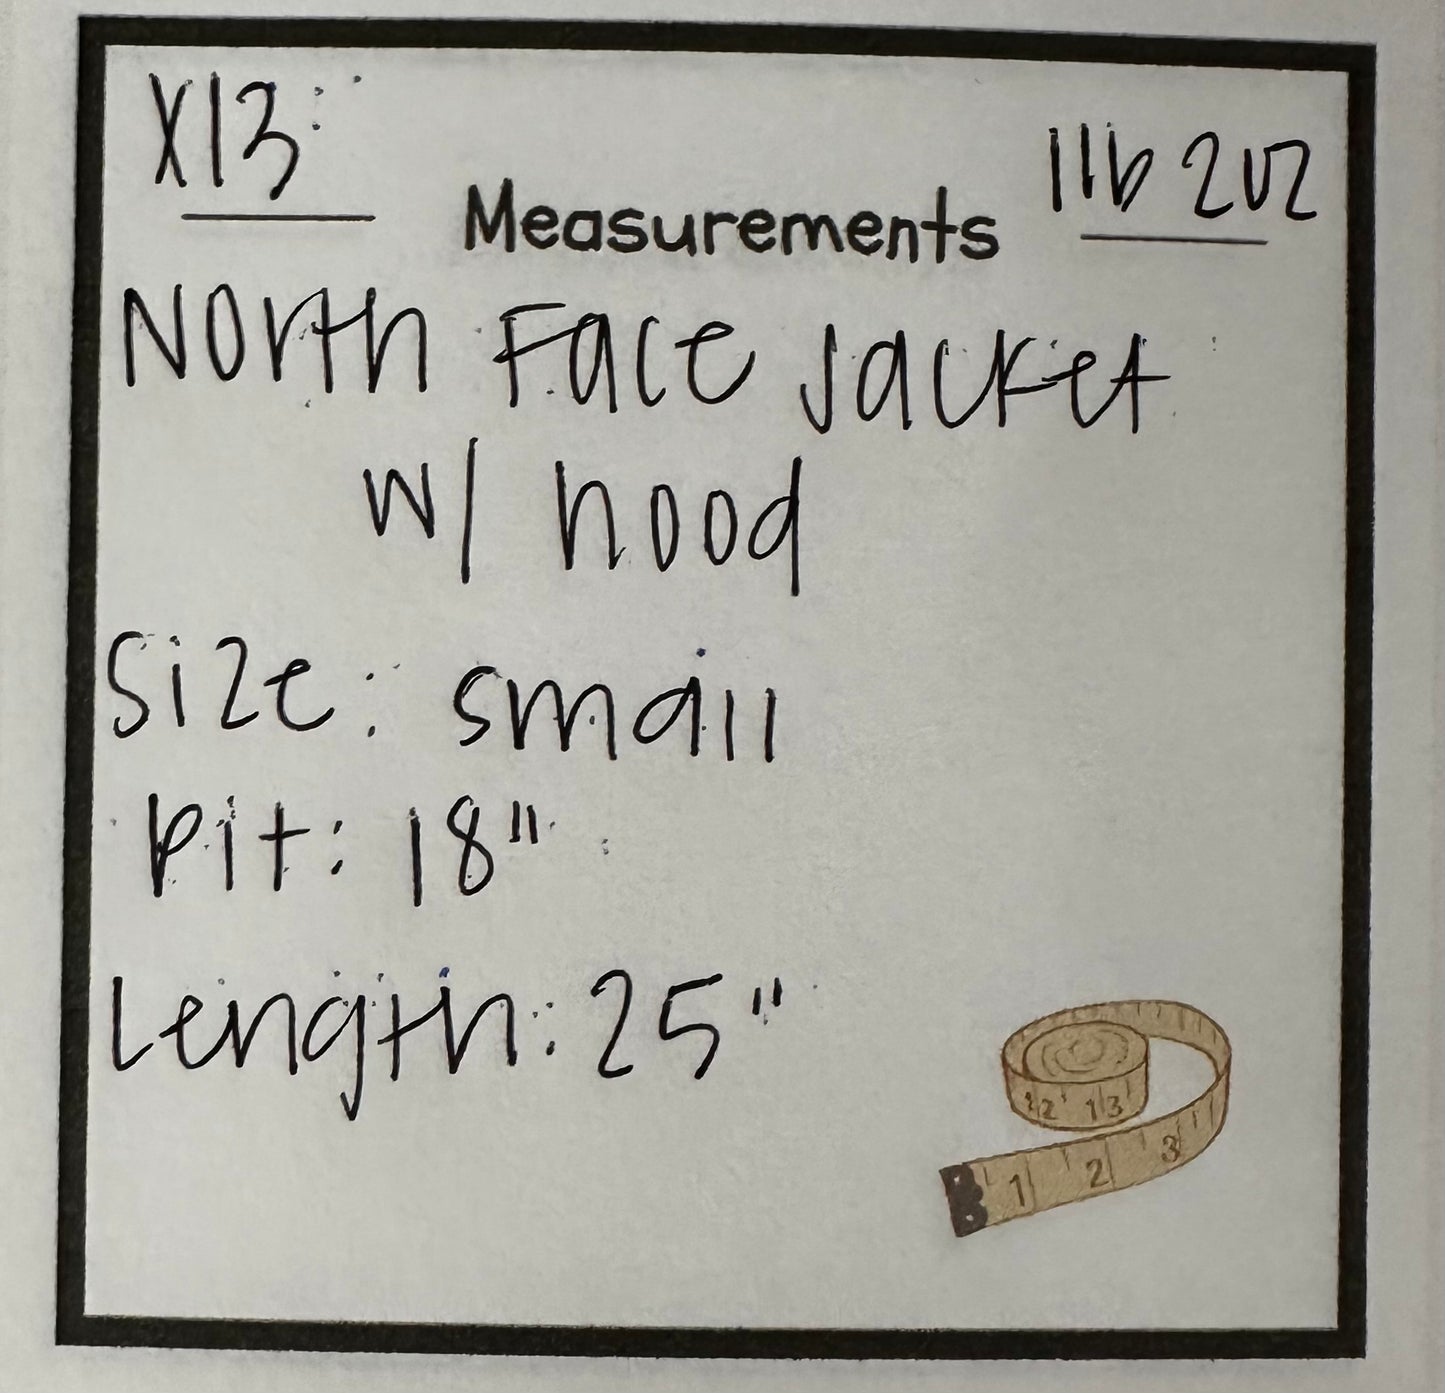 X13
1lb 2oz
Measurements
North Face Jacket
w/ hood
Size: small
Pit: 18"
Length: 25"
12 13
1 2 3